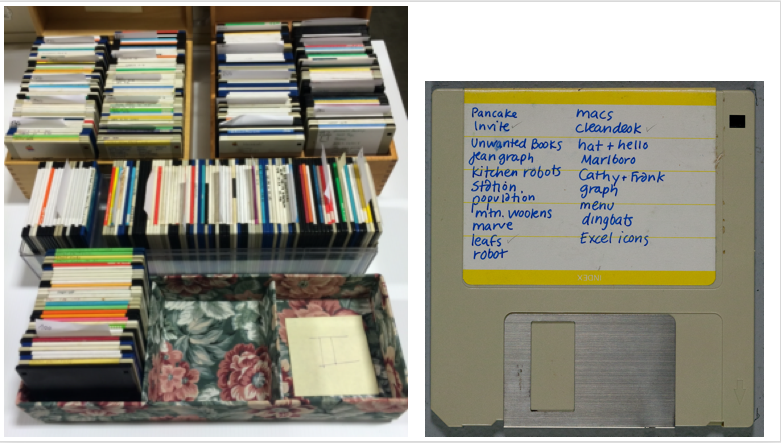 Pancake
Invite
Unwanted Books
jeangraph
kitchen robots
Station
population
mtn. woolens
marve
leafs
robot
macs
cleandesk
hat + hello
Marlboro
Cathy + Frank
graph
menu
dingbats
Excel icons